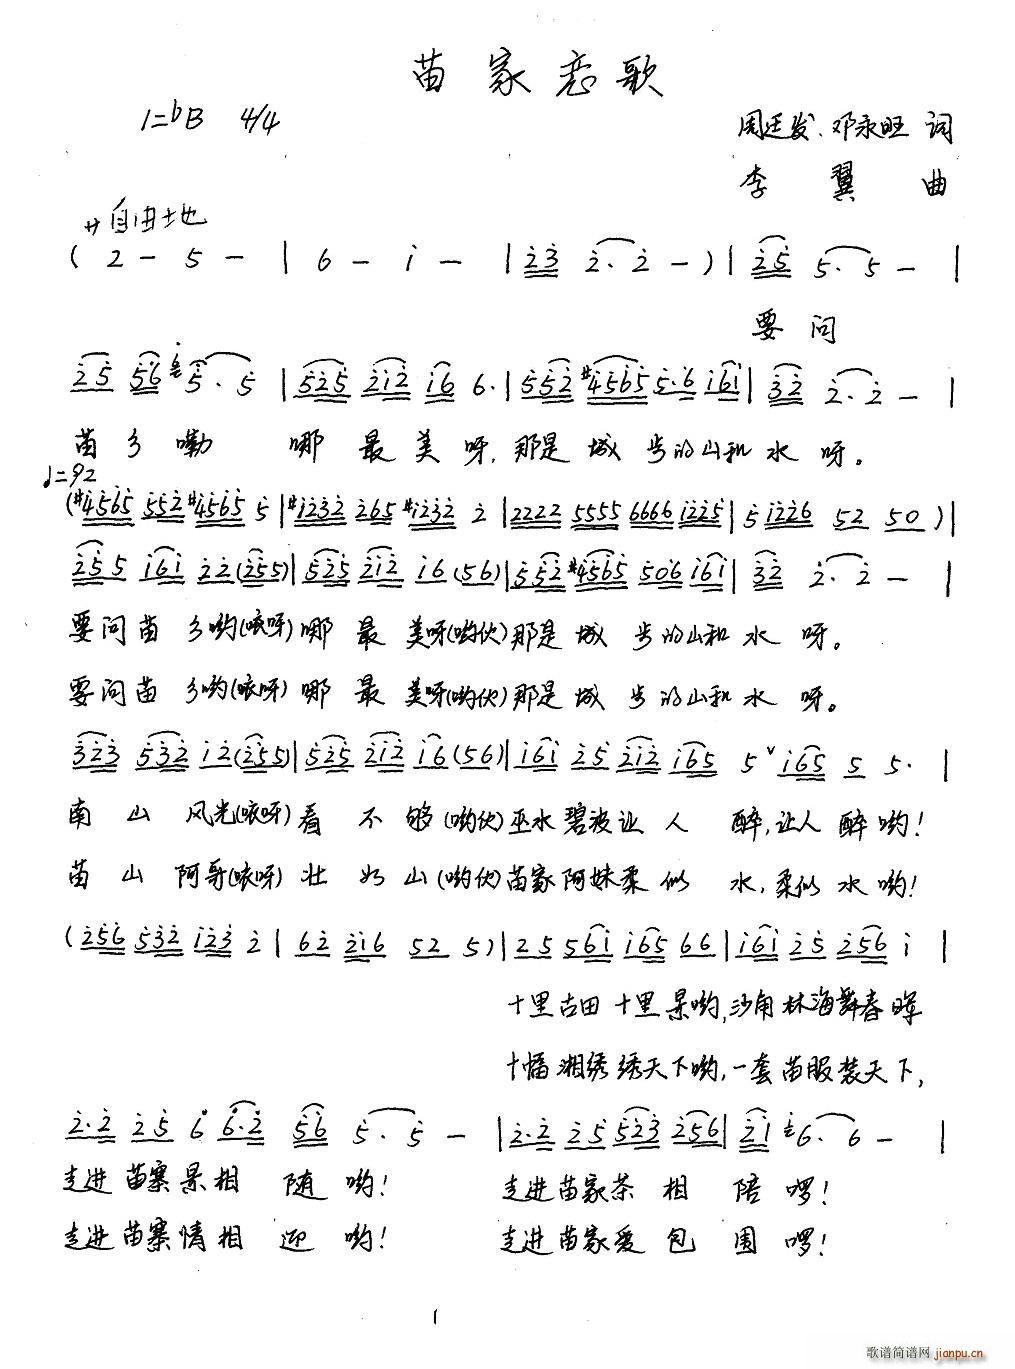 苗家恋歌
1=♭B 4/4
周廷发、邓永旺 词
李翼 曲
サ自由地
( 2 - 5 - | 6 - i - | 2 3 2 · 2 - ) | 2 5 5 · 5 - |
要问
2 5 5 6 6 5 · 5 | 5 2 5 2 1 2 1 6 6 · | 5 5 2 #4 5 6 5 5 · 6 1 6 1 | 3 2 2 · 2 - |
苗乡嘞 哪最美呀,那是城步的山和水呀。
♩=92
(#4565 552 #4565 5 | #1232 265 #1232 2 | 2222 5555 6666 1225 | 5 1226 52 50 ) |
255 161 22(255) | 525 212 16 (56) | 552 #4565 506 161 | 32 2 · 2 - |
要问苗乡哟(咳呀)哪最美呀(哟伙)那是城步的山和水呀。
要问苗乡哟(咳呀)哪最美呀(哟伙)那是城步的山和水呀。
323 532 12(255) | 525 212 16(56) | 161 25 212 165 5 ˅ 165 5 5 · |
南山风光(咳呀)看不够(哟伙)巫水碧波让人醉,让人醉哟!
苗山阿哥(咳呀)壮如山(哟伙)苗家阿妹柔似水,柔似水哟!
(256 532 123 2 | 62 216 52 5 ) | 25 561 165 66 | 161 25 256 1 |
十里古田十里景哟,沙角林海舞春晖
十幅湘绣绣天下哟,一套苗服装天下,
2·2 25 6 6·2 56 5 · 5 - | 2·2 25 523 256 | 21 6 · 6 - |
走进苗寨景相随哟! 走进苗家茶相陪啰!
走进苗寨情相迎哟! 走进苗家爱包围啰!
1
歌谱简谱网
jianpu.cn